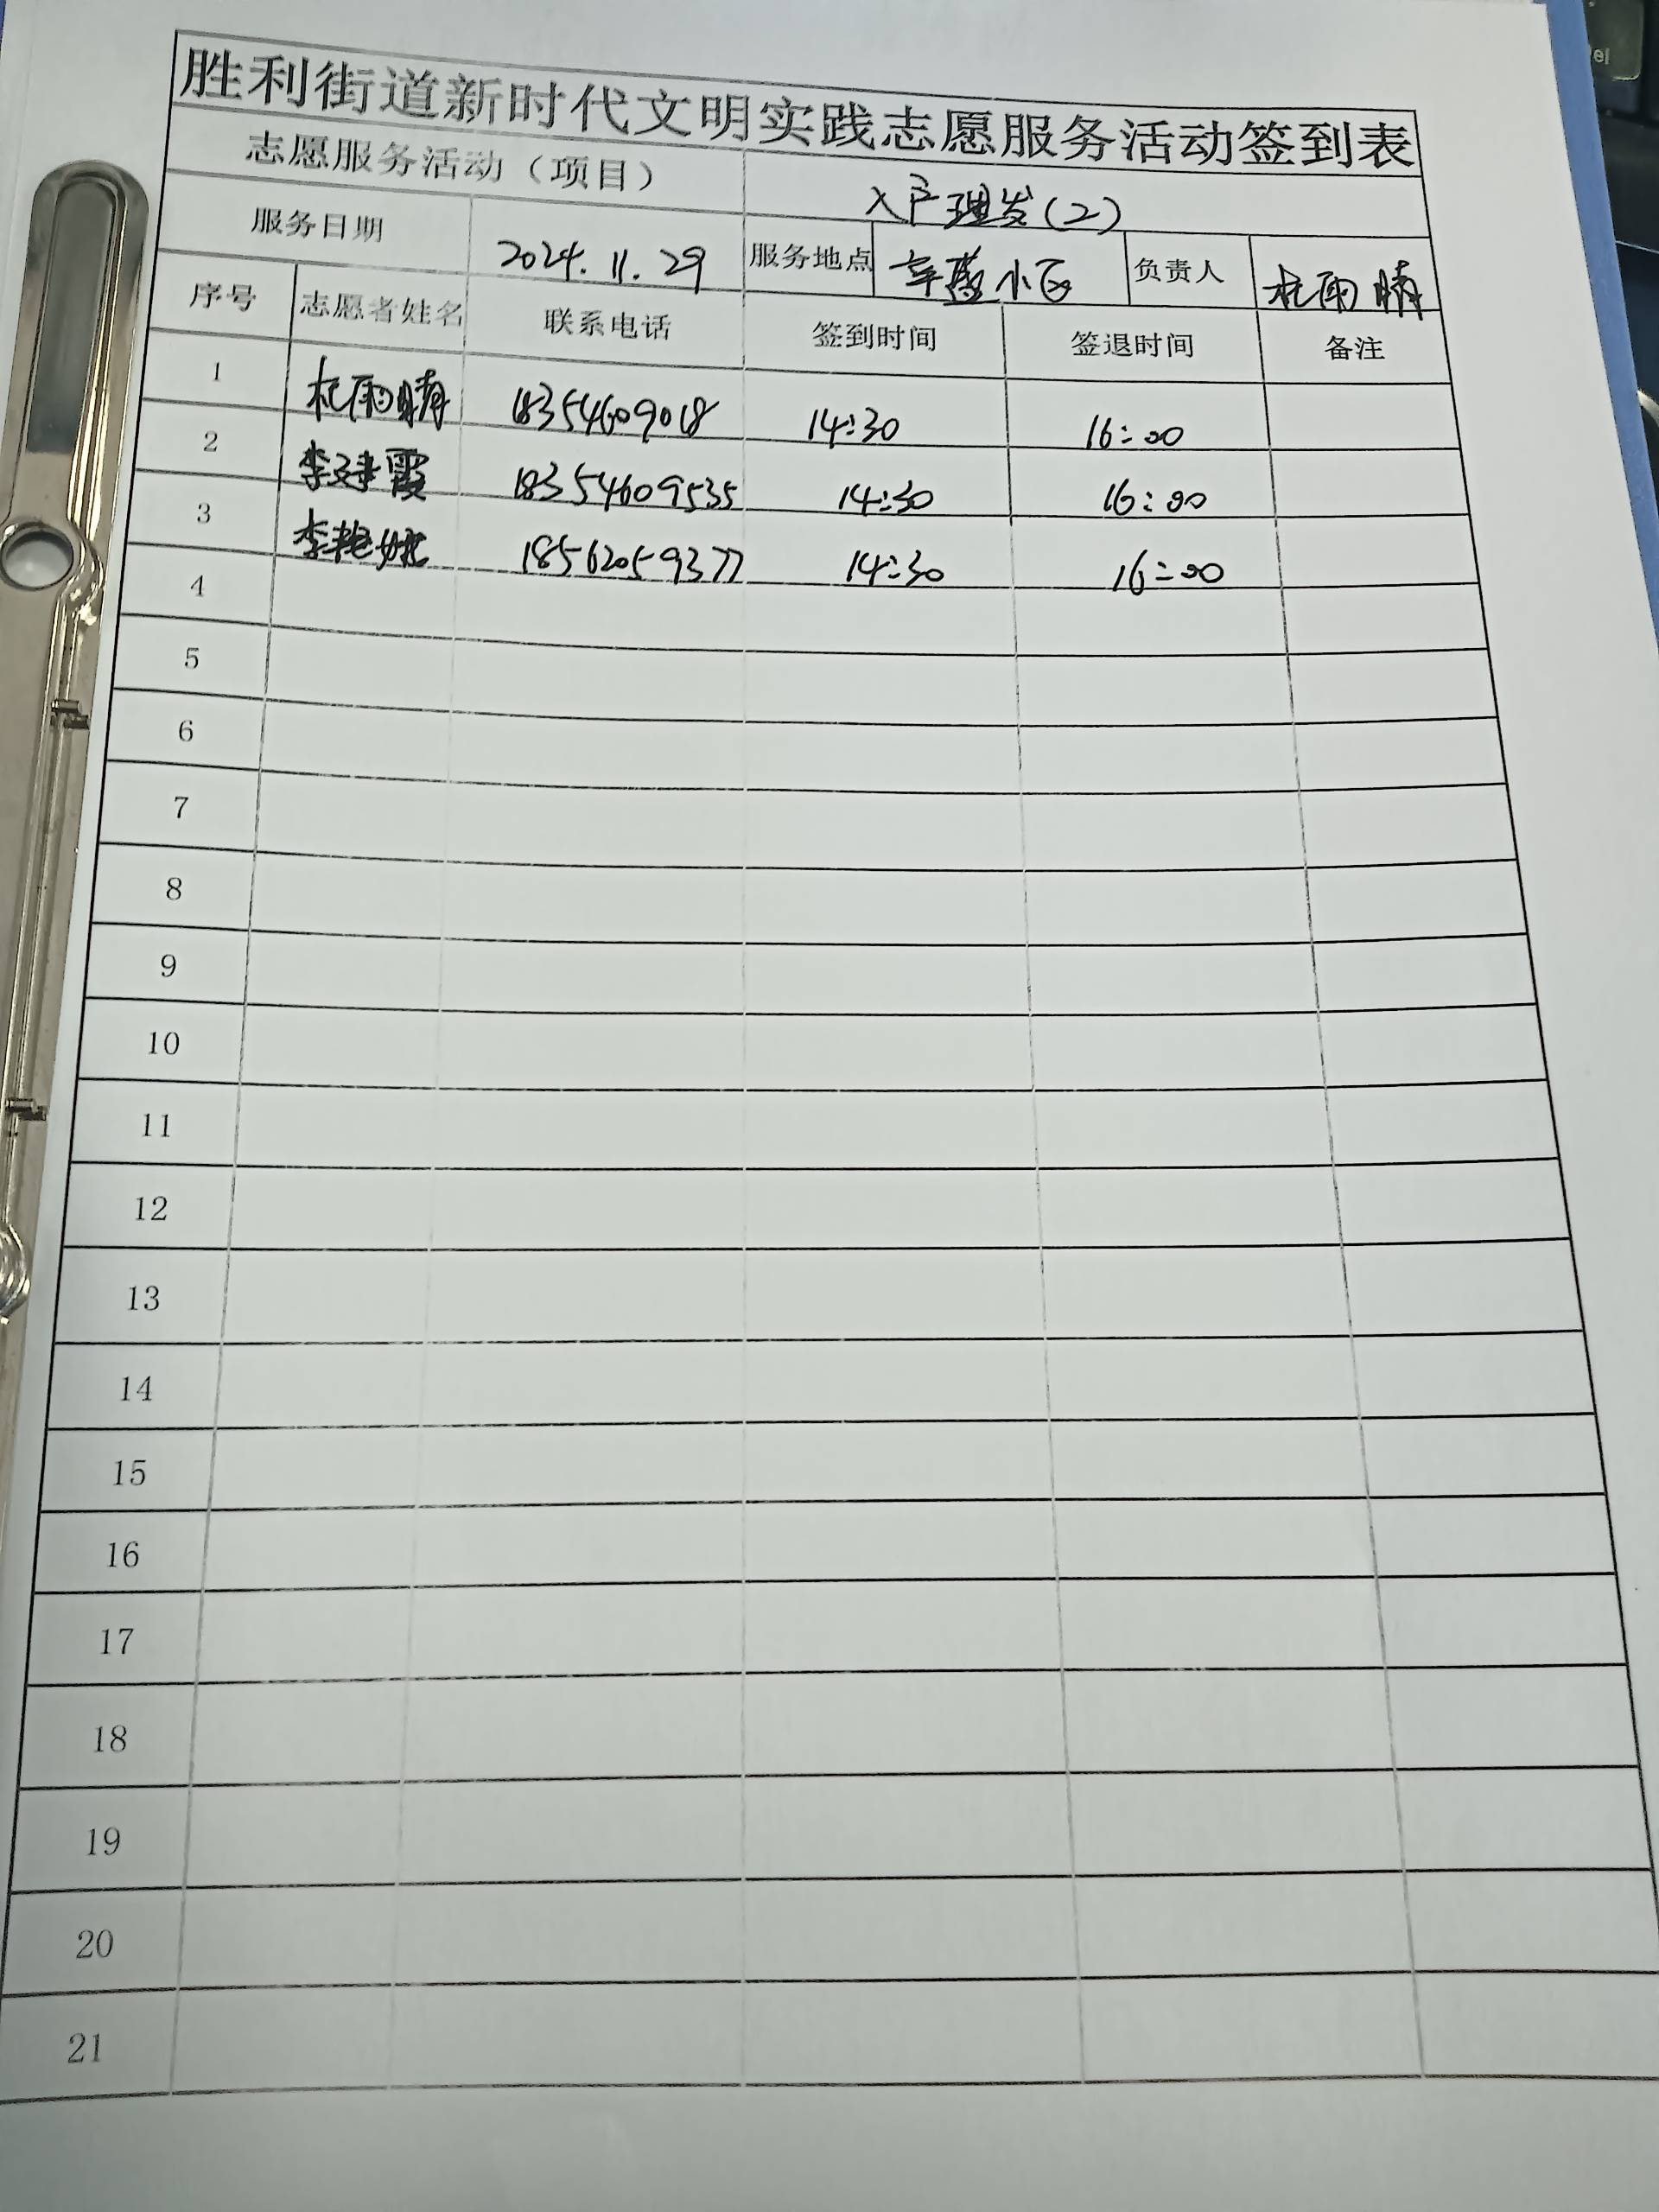 胜利街道新时代文明实践志愿服务活动签到表
志愿服务活动（项目） 入户理发(2)
服务日期 2024.11.29 服务地点 小区 负责人 杜雨晴
序号 志愿者姓名 联系电话 签到时间 签退时间 备注
1 杜雨晴 18354609018 14:30 16:00
2 李建霞 18354609535 14:30 16:00
3 李艳 18562059377 14:30 16:00
4
5
6
7
8
9
10
11
12
13
14
15
16
17
18
19
20
21